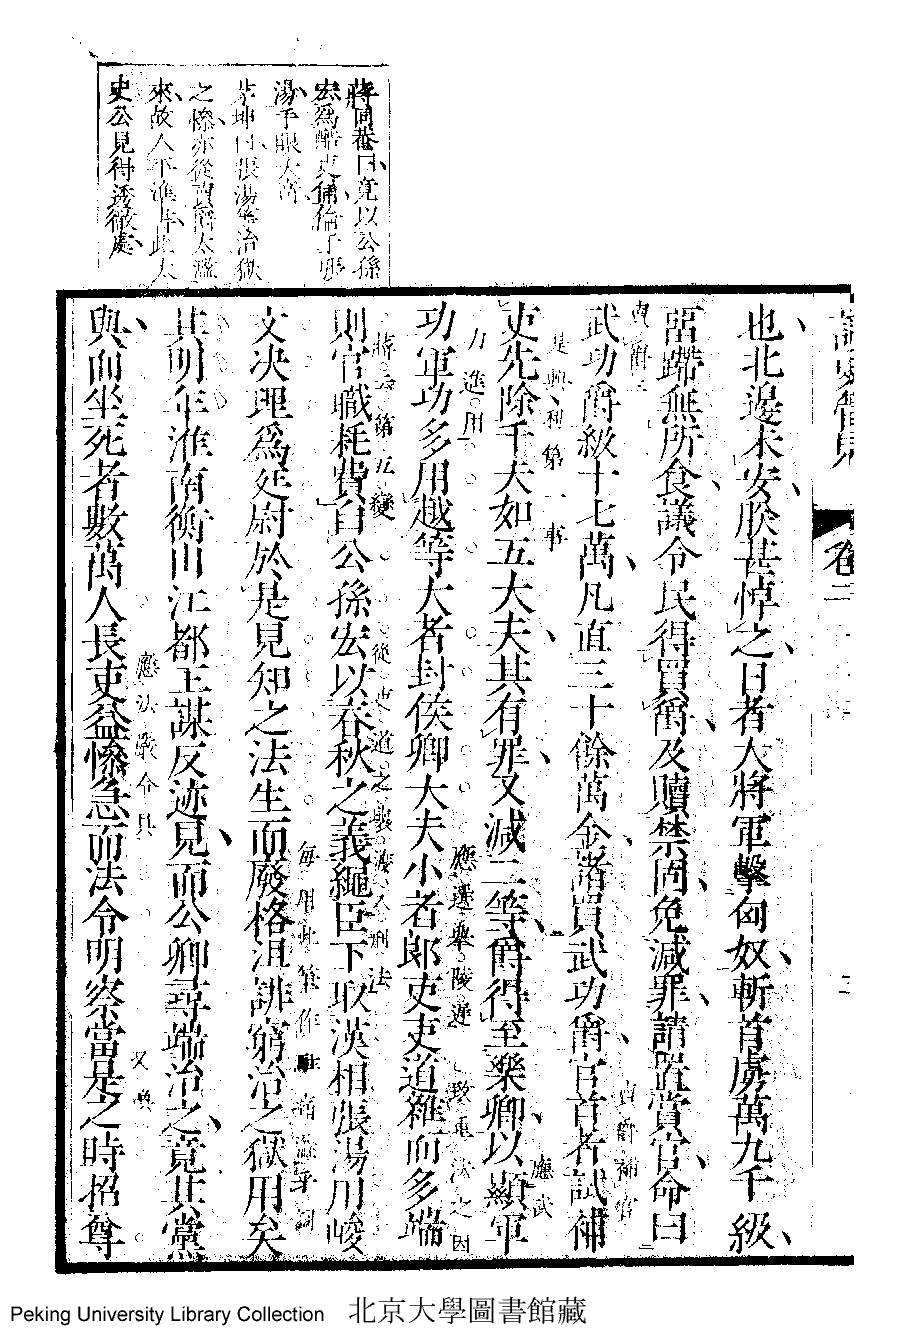 蔣同菴曰竟以公孫
宏為酷吏領倫子長
湯手眼大高
茅坤曰張湯等治獄
之慘亦從賣爵太濫
來故人平準此太
史公見得透徹處
卷二
也北邊未安朕甚悼之日者大將軍擊匈奴斬首虜萬九千級
畱蹛無所食議令民得買爵及贖禁固免減罪請置賞官命曰
賣爵二
武功爵級十七萬凡直三十餘萬金諸買武功爵官首者試補
是興利第一事
賣爵補官
吏先除千夫如五大夫其有罪又減二等爵得至樂卿以顯軍
應武
力進用
應選舉陵遲
致重法之因
功軍功多用越等大者封侯卿大夫小者郎吏吏道雜而多端
蔣云第五變
從吏道之取
入刑法
則官職耗費自公孫宏以春秋之義繩臣下取漢相張湯用峻
每用此等作
文决理爲廷尉於是見知之法生而廢格沮誹窮治之獄用矣
其明年淮南衡山江都王謀反迹見而公卿尋端治之竟其黨
應法嚴令具
又與
與而坐死者數萬人長吏益慘急而法令明察當是之時招尊
Peking University Library Collection 北京大學圖書館藏